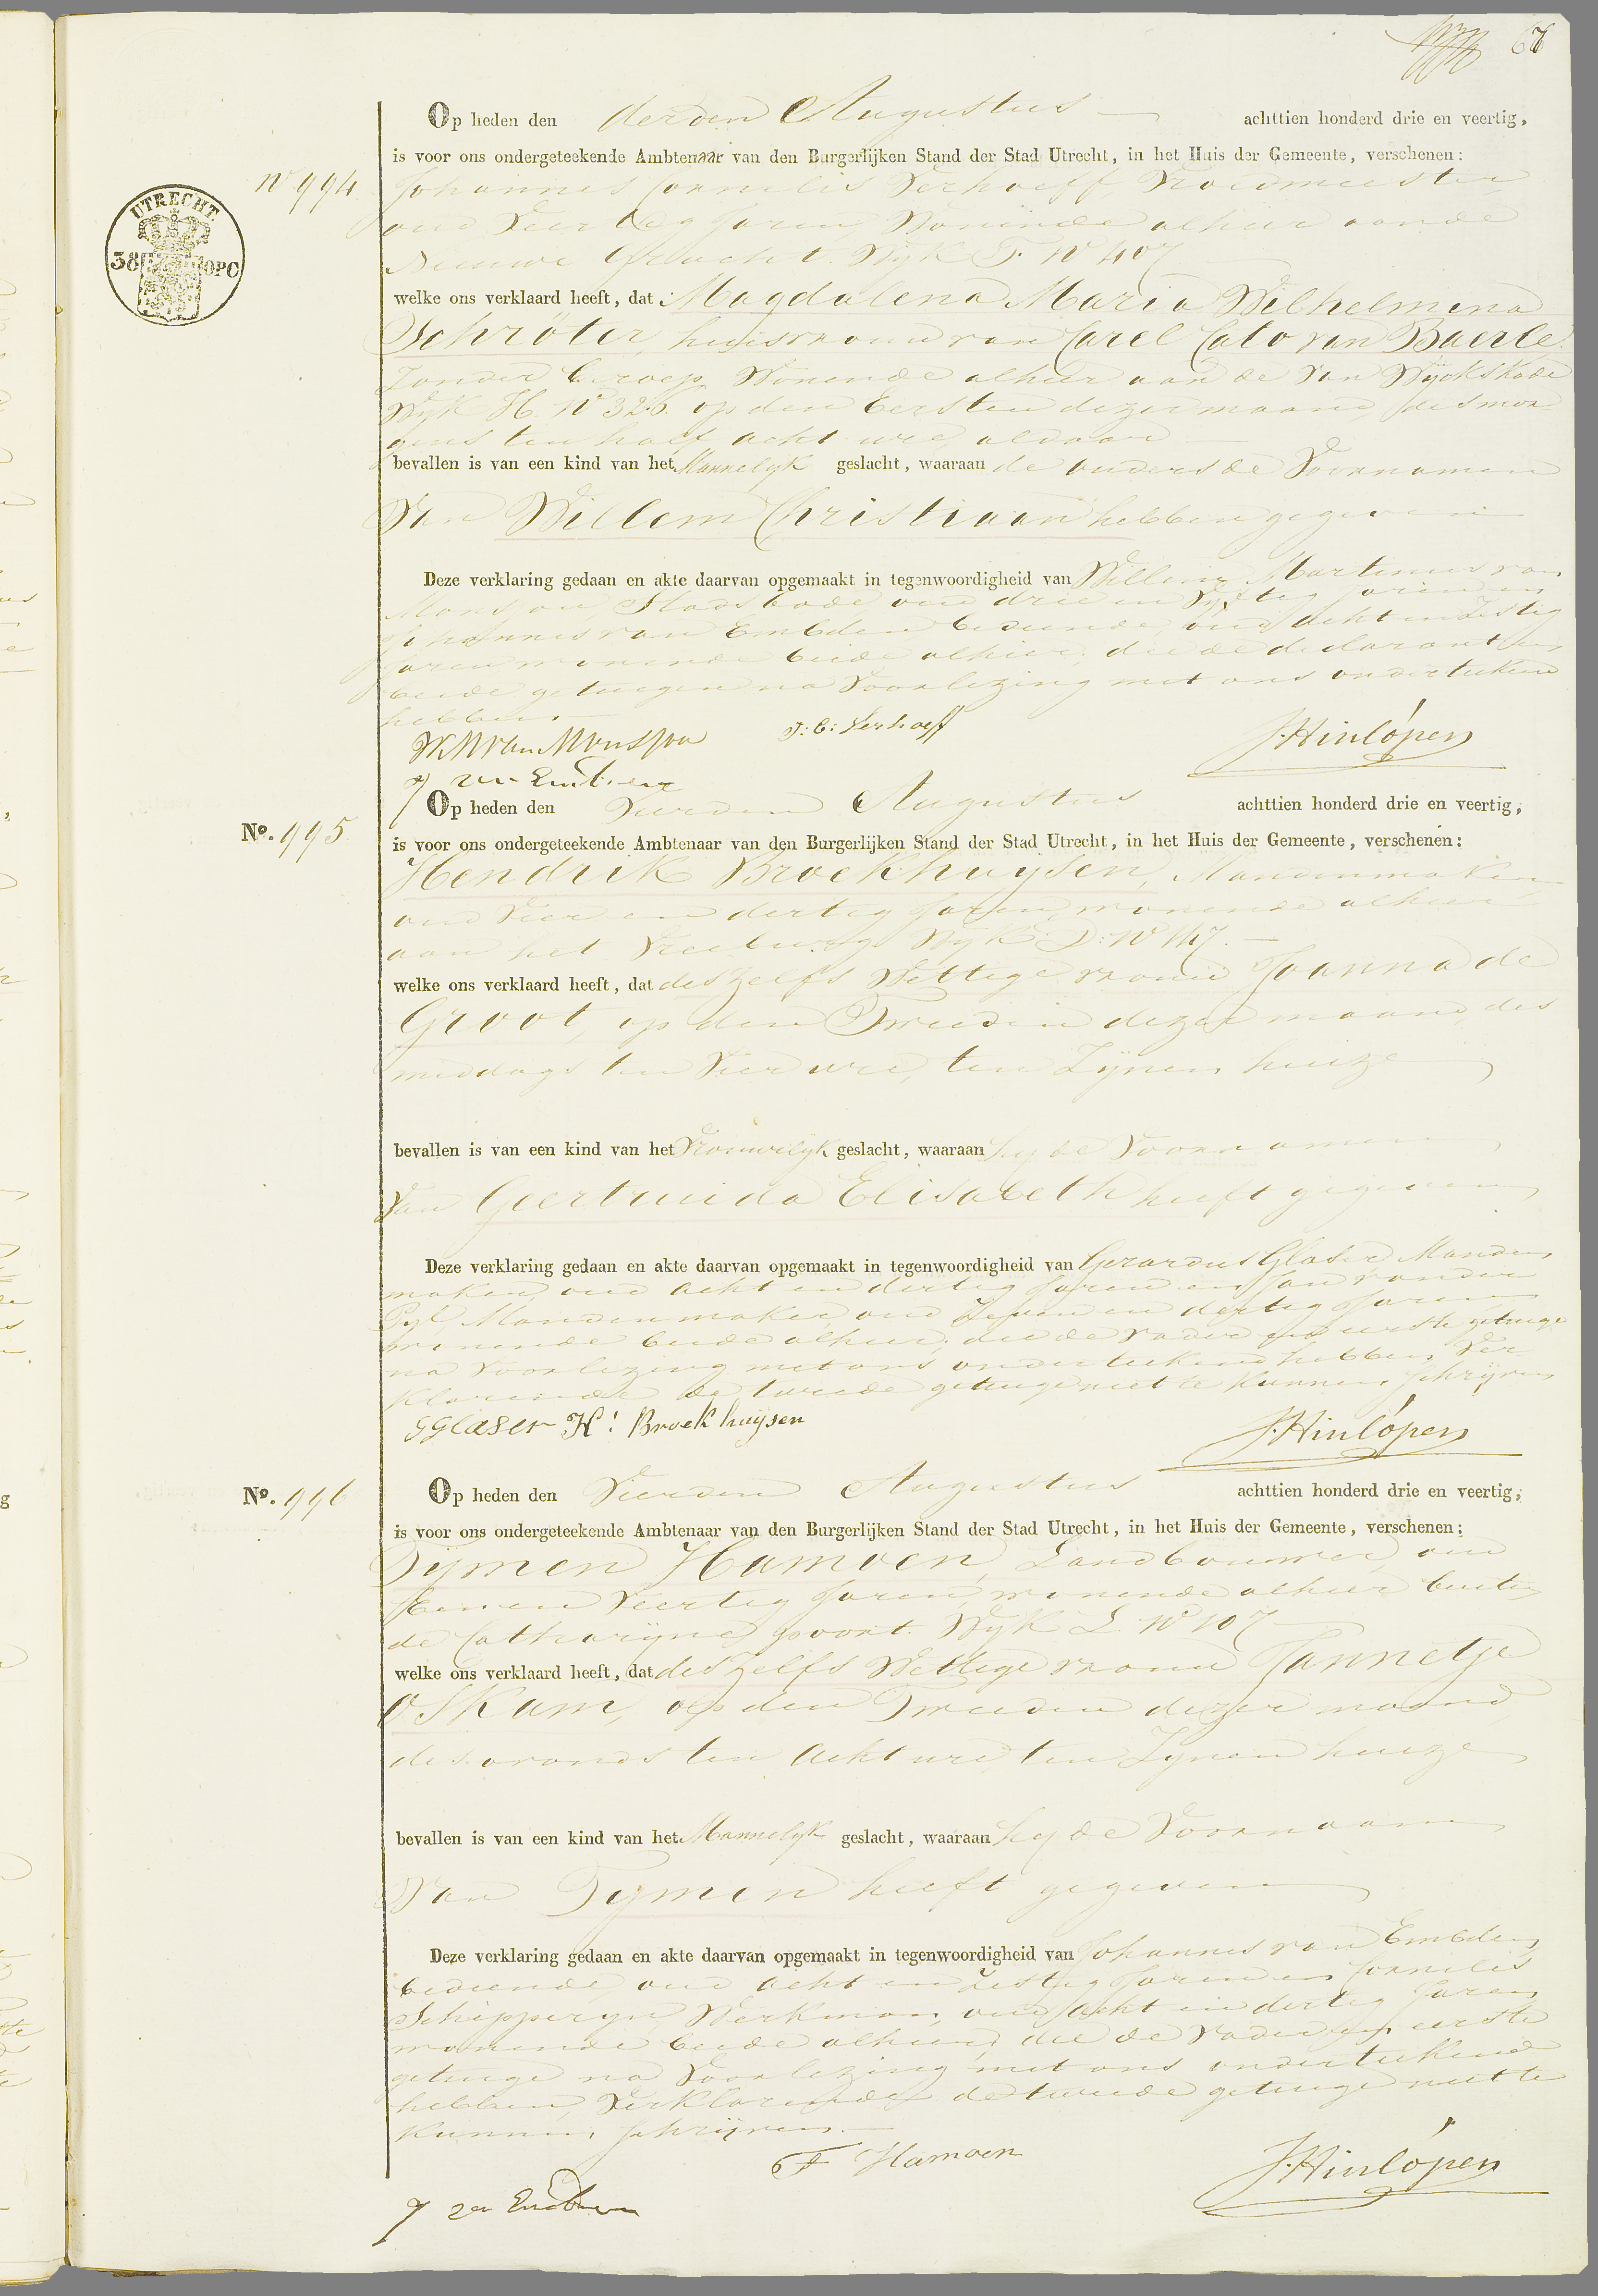 67
Op heden den derden Augustus achttien honderd drie en veertig,
is voor ons ondergeteekende Ambtenaar van den Burgerlijken Stand der Stad Utrecht, in het Huis der Gemeente, verschenen:
No 994
UTRECHT
38 OPC
Johannes Cornelis Verhoeff Vroedmeester
oud Veertig Jaren, Wonende alhier aan de
Nieuwe Gracht. Wijk F. No 407
welke ons verklaard heeft, dat Magdalena Maria Wilhelmina
Schröter, huisvrouw van Carel Cato van Baerle
Zonder beroep, Wonende alhier aan de Van Wijckskade
Wijk H. No 326. op den Eersten dezer maand, des mor-
gens ten half acht ure aldaar
bevallen is van een kind van het Mannelijk geslacht, waaraan de ouders de Voornamen
Van Willem Christiaan hebben gegeven
Deze verklaring gedaan en akte daarvan opgemaakt in tegenwoordigheid van Willem Martinus van
Monsjou, Stads bode oud drie en Vijftig Jaren en
Johannes van Embden bediende, oud Acht en Zestig
Jaren wonende beide alhier; die de declarant en
beide getuigen na Voorlezing met ons onderteekend
hebben.
WM van Monsjou J: C: Verhoeff J. Hinlópen
J van Embden
Op heden den Vierden Augustus achttien honderd drie en veertig,
No. 995
is voor ons ondergeteekende Ambtenaar van den Burgerlijken Stand der Stad Utrecht, in het Huis der Gemeente, verschenen:
Hendrik Broekhuijsen, Mandenmaker
oud Vier en dertig Jaren, wonende alhier
aan het Vreeburg Wijk D: No 147.
welke ons verklaard heeft, dat deszelfs Wettige vrouw Joanna de
Groot, op den Tweeden dezer maand, des
middags ten Vier ure, ten Zijnen huize
bevallen is van een kind van het Vrouwelijk geslacht, waaraan hij de Voornamen
Van Geertruida Elisabeth heeft gegeven
Deze verklaring gedaan en akte daarvan opgemaakt in tegenwoordigheid van Gerardus Glaser Manden
maker oud Acht en dertig Jaren en Jan van der
Pijl Mandenmaker, oud Zeven en dertig Jaren,
wonende beide alhier; die de Vader en eerste getuige
na Voorlezing met ons onderteekend hebben, Ver
klarende de tweede getuige niet te kunnen schrijven
G Glaser H: Broekhuijsen J. Hinlópen
No. 996
Op heden den Vierden Augustus achttien honderd drie en veertig,
is voor ons ondergeteekende Ambtenaar van den Burgerlijken Stand der Stad Utrecht, in het Huis der Gemeente, verschenen:
Tijmen Hamoen, Landbouwer, oud
Een en Veertig Jaren, wonende alhier buiten
de Catharijne poort. Wijk L. No 107
welke ons verklaard heeft, dat deszelfs Wettige vrouw Jannetje
Oskam, op den Tweeden dezer maand,
des avonds ten Acht ure, ten Zijnen huize
bevallen is van een kind van het Mannelijk geslacht, waaraan hij de Voornaam
Van Tijmen heeft gegeven
Deze verklaring gedaan en akte daarvan opgemaakt in tegenwoordigheid van Johannes van Embden,
bediende, oud Acht en Zestig Jaren en Cornelis
Schipperijn Werkman, oud Acht en dertig Jaren
wonende beide alhier, die de Vader en eerste
getuige na Voorlezing met ons onderteekend
hebben, Verklarende de tweede getuige niet te
kunnen schrijven.
T Hamoen J. Hinlópen
J van Embden